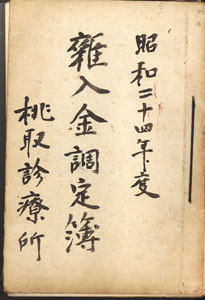 昭和二十四年度
雑入金調定簿
桃取診療所